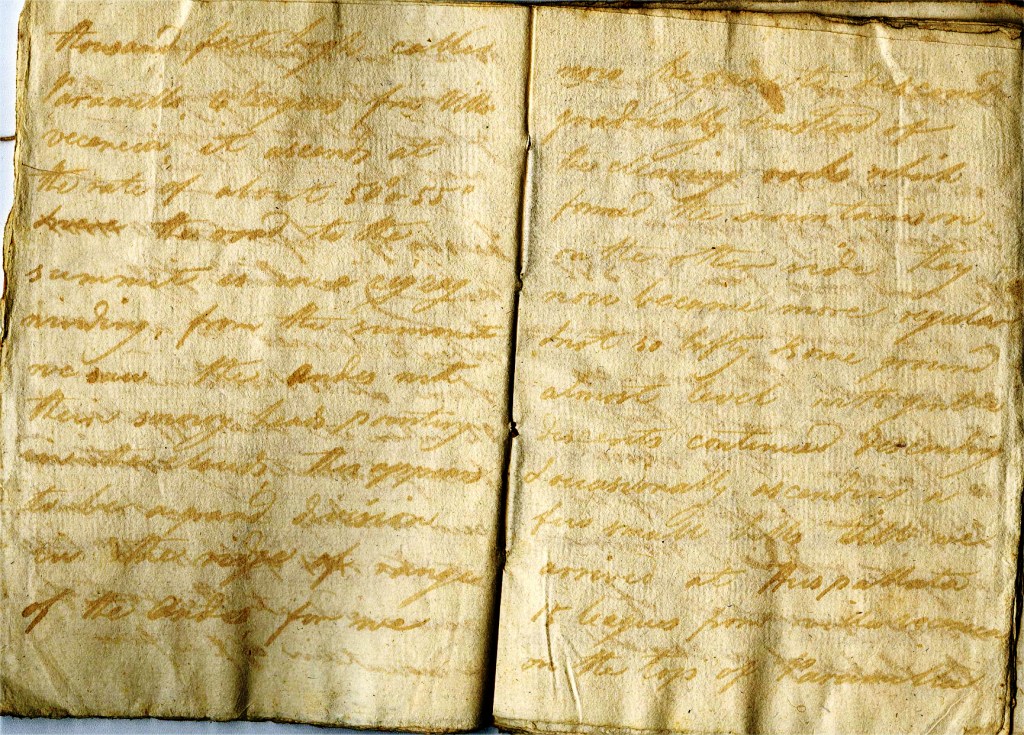 thousand feet high called
Paramillo 2 leagues from Villa
vecencia, it ascends at
the rate of about 50 or 55°
the road to the
summit is one zigzag
winding, from the summit
we saw the Andes with
their snowy heads pointing
in the clouds this appears
to be a grand division
in the ridge of ranges
of the Andes for we
now began to descend
gradually instead of
the rocks which
formed the mountains on
on the other side they
now became more regular
but so lofty some ground
almost level with gentle
descents continued descending
& occasionally ascending a
few small hills till we
arrived at Huspallata
15 leagues from
on the top of Paramillo